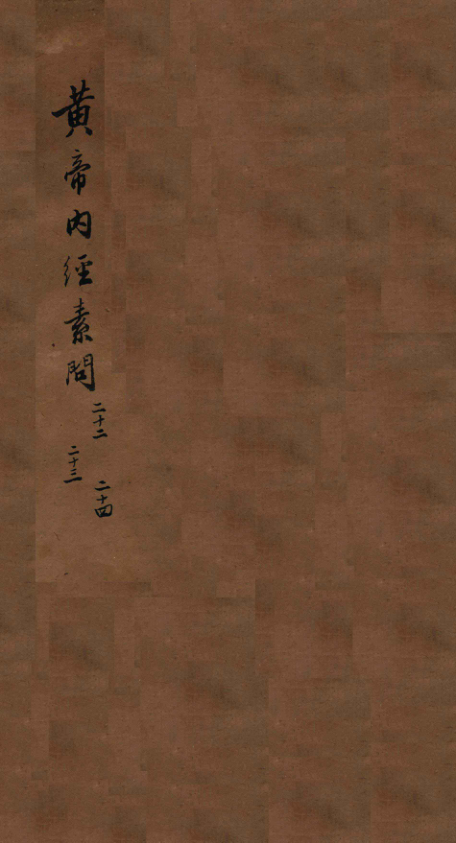 黄帝内經素問
二十二
二十三
二十四